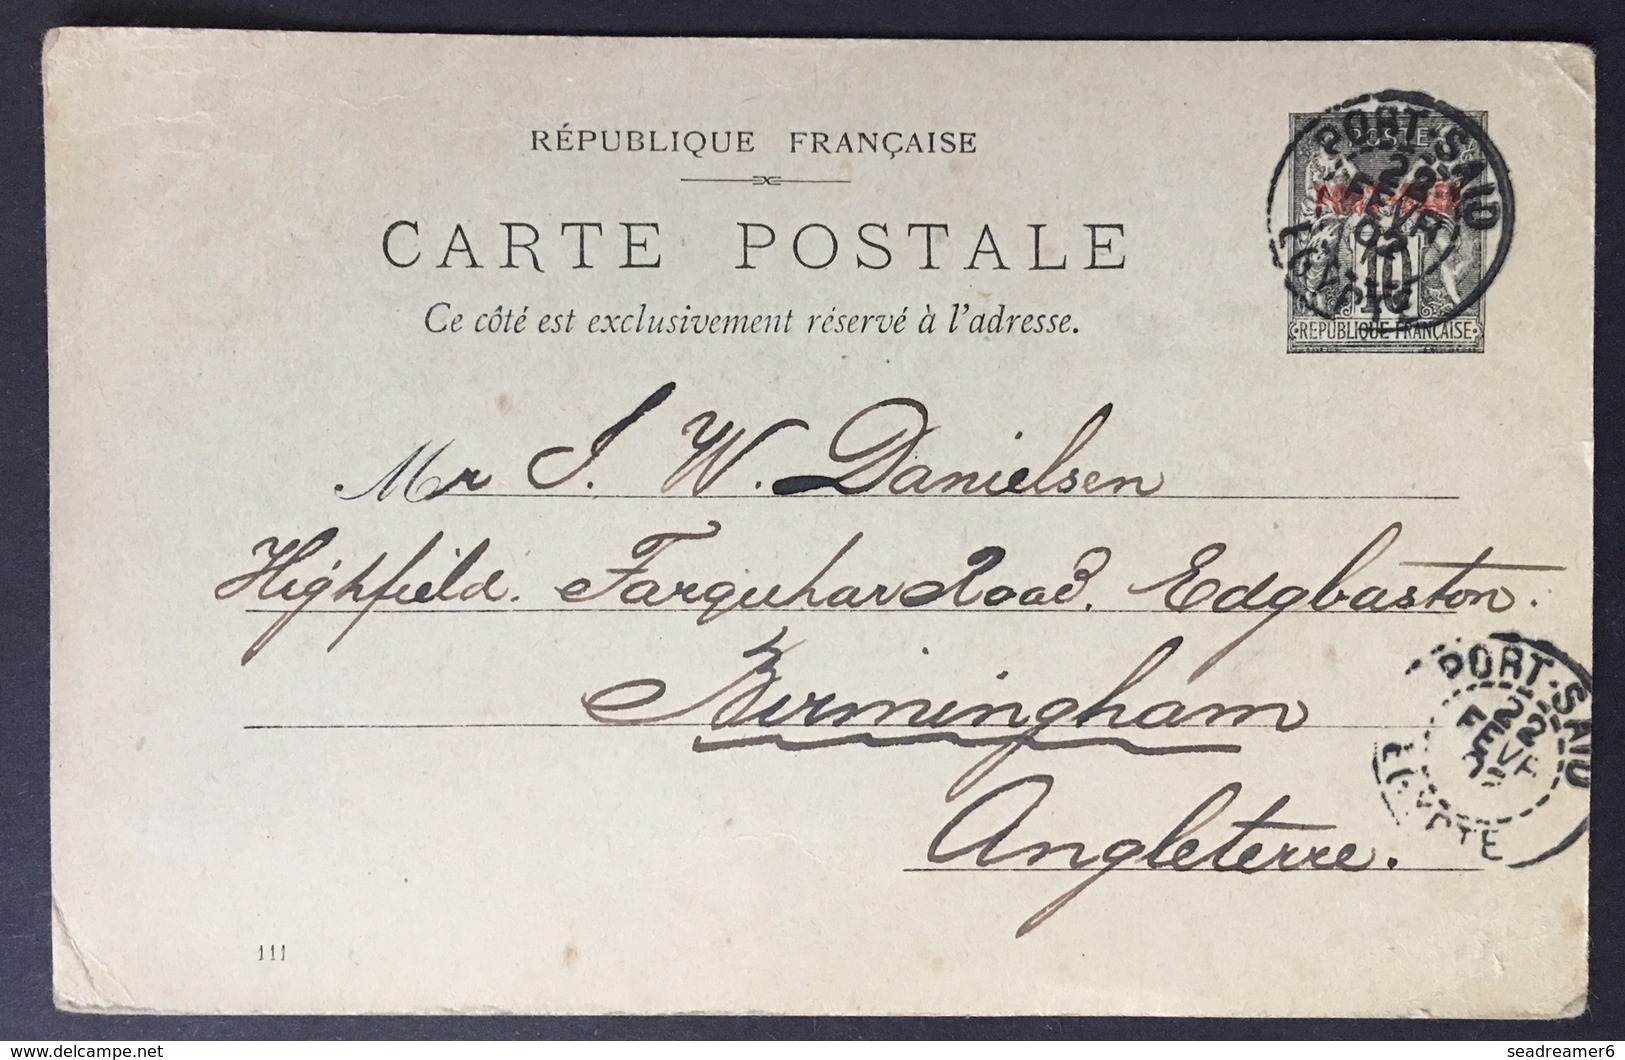 RÉPUBLIQUE FRANÇAISE
CARTE POSTALE
Ce côté est exclusivement réservé à l'adresse.
PORT-SAID
22
FEVR
02
10
RÉPUBLIQUE FRANÇAISE
Mr J. W. Danielsen
Highfield. Farquhar Road, Edgbaston.
Birmingham
Angleterre.
PORT-SAID
22
FEVR
EGYPTE
111
© delcampe.net
seadreamer6